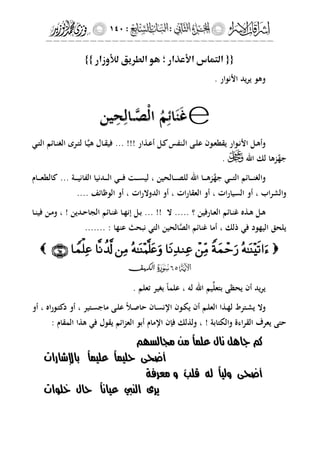 إشراقات الإسراء الجزء الثاني : الباب السابع : ١٤٠ :
{{ التماس الأعذار ؛ هو الطريق للأوزار }}
وهو يريد الأنوار .
غَنَائِمُ الصَّالِحِين
وأهل الأنوار يقطعون على النفس كل أعذار !!! ... فيقال هيَّا لترى الغنائم التي
جهَّزها لك الله .
والغنائم التي جهَّزها الله للصالحين ، ليست في الدنيا الفانية ... كالطعام
والشراب ، أو السيارات ، أو العقارات ، أو الدولارات ، أو الوظائف ....
هل هذه غنائم العارفين ؟ ..... لا !! ... بل إنها غنائم الجاحدين ! ، ومن فينا
يلحق اليهود في ذلك ، أما غنائم الصَّالحين التي نبحث عنها : .......
﴿ ءَاتَيْنَٰهُ رَحْمَةً مِّنْ عِندِنَا وَعَلَّمْنَٰهُ مِن لَّدُنَّا عِلْمًا ﴾
الآية ٦٥ سورة الكهف
يريد أن يحظى بتعليم الله له ، علماً بغير تعلم .
ولا يشترط لهذا العلم أن يكون الإنسان حاصلاً على ماجستير ، أو دكتوراه ، أو
حتى يعرف القراءة والكتابة ! ، ولذلك فإن الإمام أبو العزائم يقول في هذا المقام :
كم جاهل نال علماً من مجالسهم
أضحى حليماً عليماً بالإشارات
أضحى ولياً له قلب و معرفة
يرى النبي عياناً حال خلوات